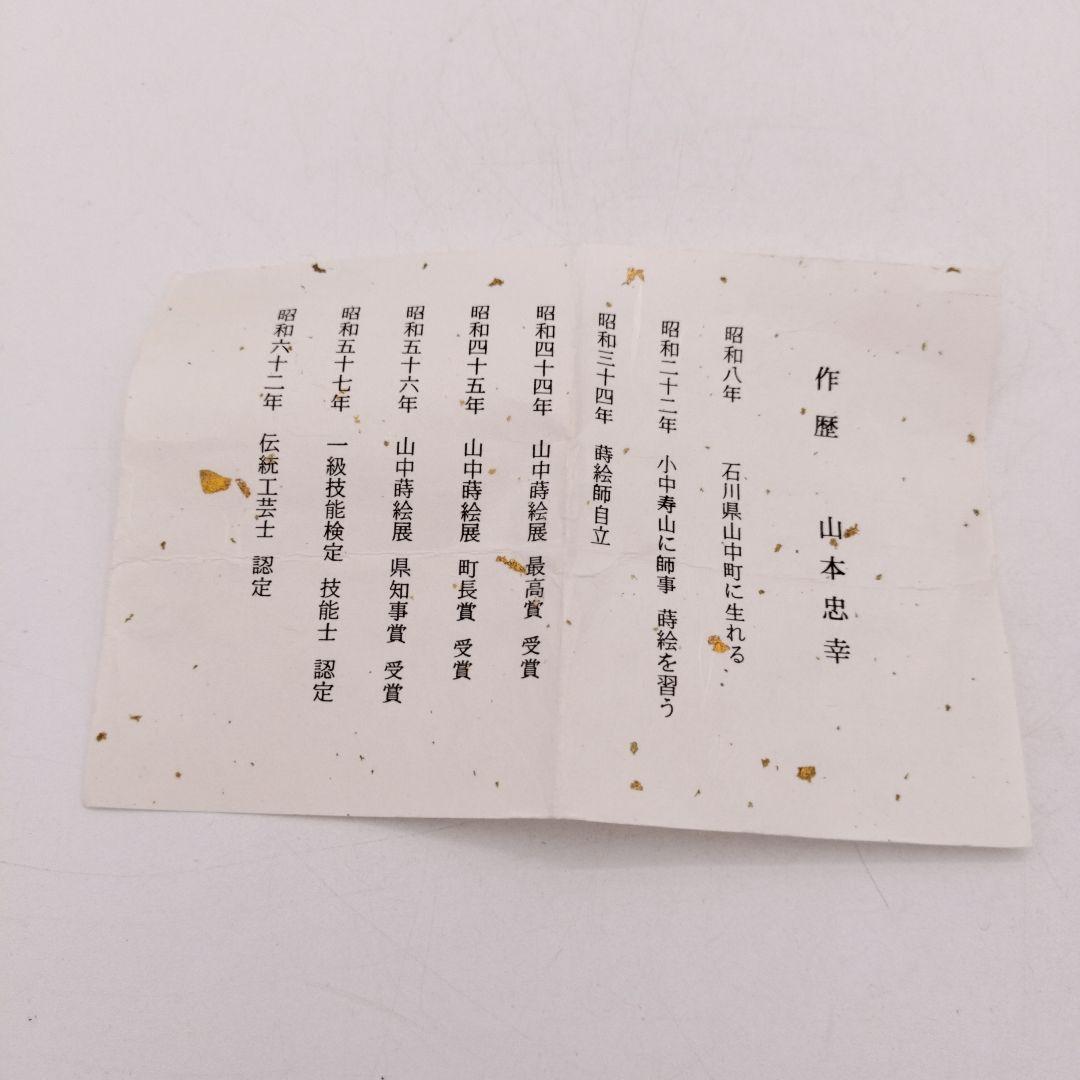 作歴　山本忠幸
昭和八年　石川県山中町に生れる
昭和二十二年　小中寿山に師事　蒔絵を習う
昭和三十四年　蒔絵師自立
昭和四十四年　山中蒔絵展　最高賞　受賞
昭和四十五年　山中蒔絵展　町長賞　受賞
昭和五十六年　山中蒔絵展　県知事賞　受賞
昭和五十七年　一級技能検定　技能士　認定
昭和六十二年　伝統工芸士　認定